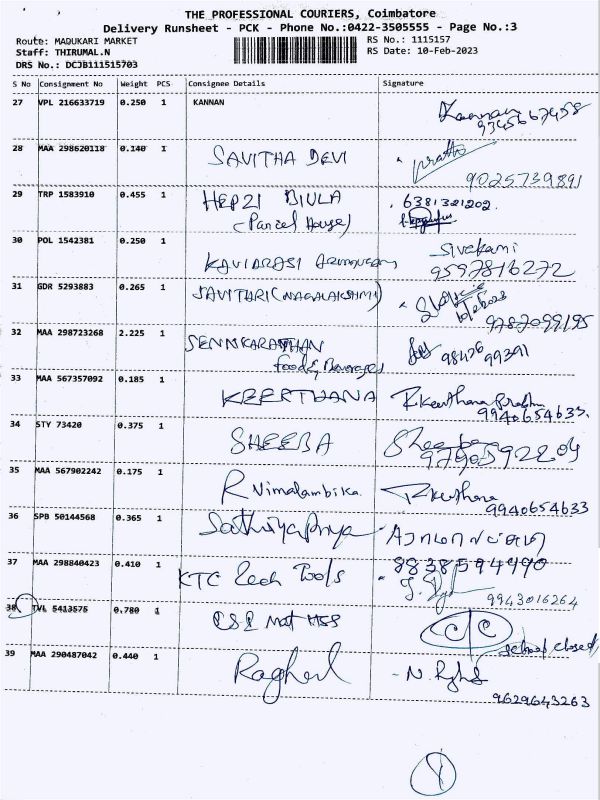 THE PROFESSIONAL COURIERS, Coimbatore
Delivery Runsheet - PCK - Phone No.:0422-3505555 - Page No.:3
Route: MADUKARI MARKET RS No.: 1115157
Staff: THIRUMAL.N RS Date: 10-Feb-2023
DRS No.: DCJB111515703
S No Consignment No Weight PCS Consignee Details Signature
27 VPL 216633719 0.250 1 KANNAN
28 MAA 298620118 0.140 1 SAVITHA DEVI
9025739891
29 TRP 1583910 0.455 1 HEPZI BIULA 6381321202
(Parcel House)
30 POL 1542381 0.250 1 Sivakami
9597816272
31 GDR 5293883 0.265 1 SAVITARI (NAGALAKSHMI)
9787099195
32 MAA 298723268 2.225 1
33 MAA 567357092 0.185 1 KEERTHANA R.Keerthana Prabhu
9940654633.
34 STY 73420 0.375 1 SHEEBA Sheeba
35 MAA 567902242 0.175 1 R Vimalambika
9940654633
36 SPB 50144568 0.365 1 Sathiyapriya
8838594490
37 MAA 298840423 0.410 1 KTC Tech Tools
9943016264
38 TVL 5413575 0.780 1
school closed
39 MAA 290487042 0.440 1 Raghul
9629643263